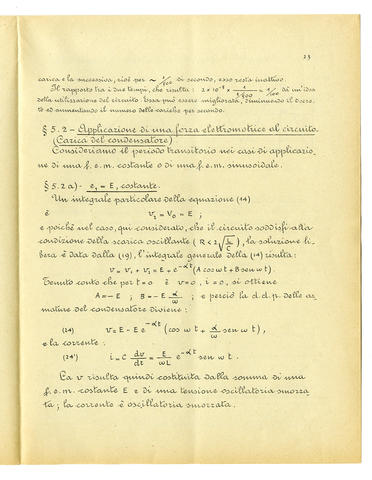 23
carica e la successiva, cioè per ~ 1/500 di secondo, esso resta inattivo.
Il rapporto tra i due tempi, che risulta: 2 × 10⁻⁵ × = 1/100 dà un'idea
della utilizzazione del circuito. Essa può essere migliorata, diminuendo il
ed aumentando il numero delle cariche per secondo.
§ 5.2 - Applicazione di una forza elettromotrice al circuito
(Carica del condensatore)
Consideriamo il periodo transitorio nei casi di applicazio-
ne di una f.e.m. costante o di una f.e.m. sinusoidale.
§ 5.2 a) - e₁ = E, costante.
Un integrale particolare della equazione (14)
è v₁ = V₀ = E ;
e poichè nel caso, qui considerato, che il circuito soddisfi alla
condizione della scarica oscillante (R < 2 √(L/C)), la soluzione li-
bera è data dalla (19), l'integrale generale della (14) risulta:
v = v₁ + v₂ = E + e^(-αt) (A cos ωt + B sen ωt).
Tenuto conto che per t = 0 è v = 0, i = 0, si ottiene
A = - E ; B = - E α/ω ; e perciò la d.d.p. delle ar-
mature del condensatore diviene:
(24) v = E - E e^(-αt) (cos ωt + α/ω sen ωt),
e la corrente:
(24') i = C dv/dt = E/ωL e^(-αt) sen ωt.
La v risulta quindi costituita dalla somma di una
f.e.m. costante E e di una tensione oscillatoria smorza-
ta; la corrente è oscillatoria smorzata.